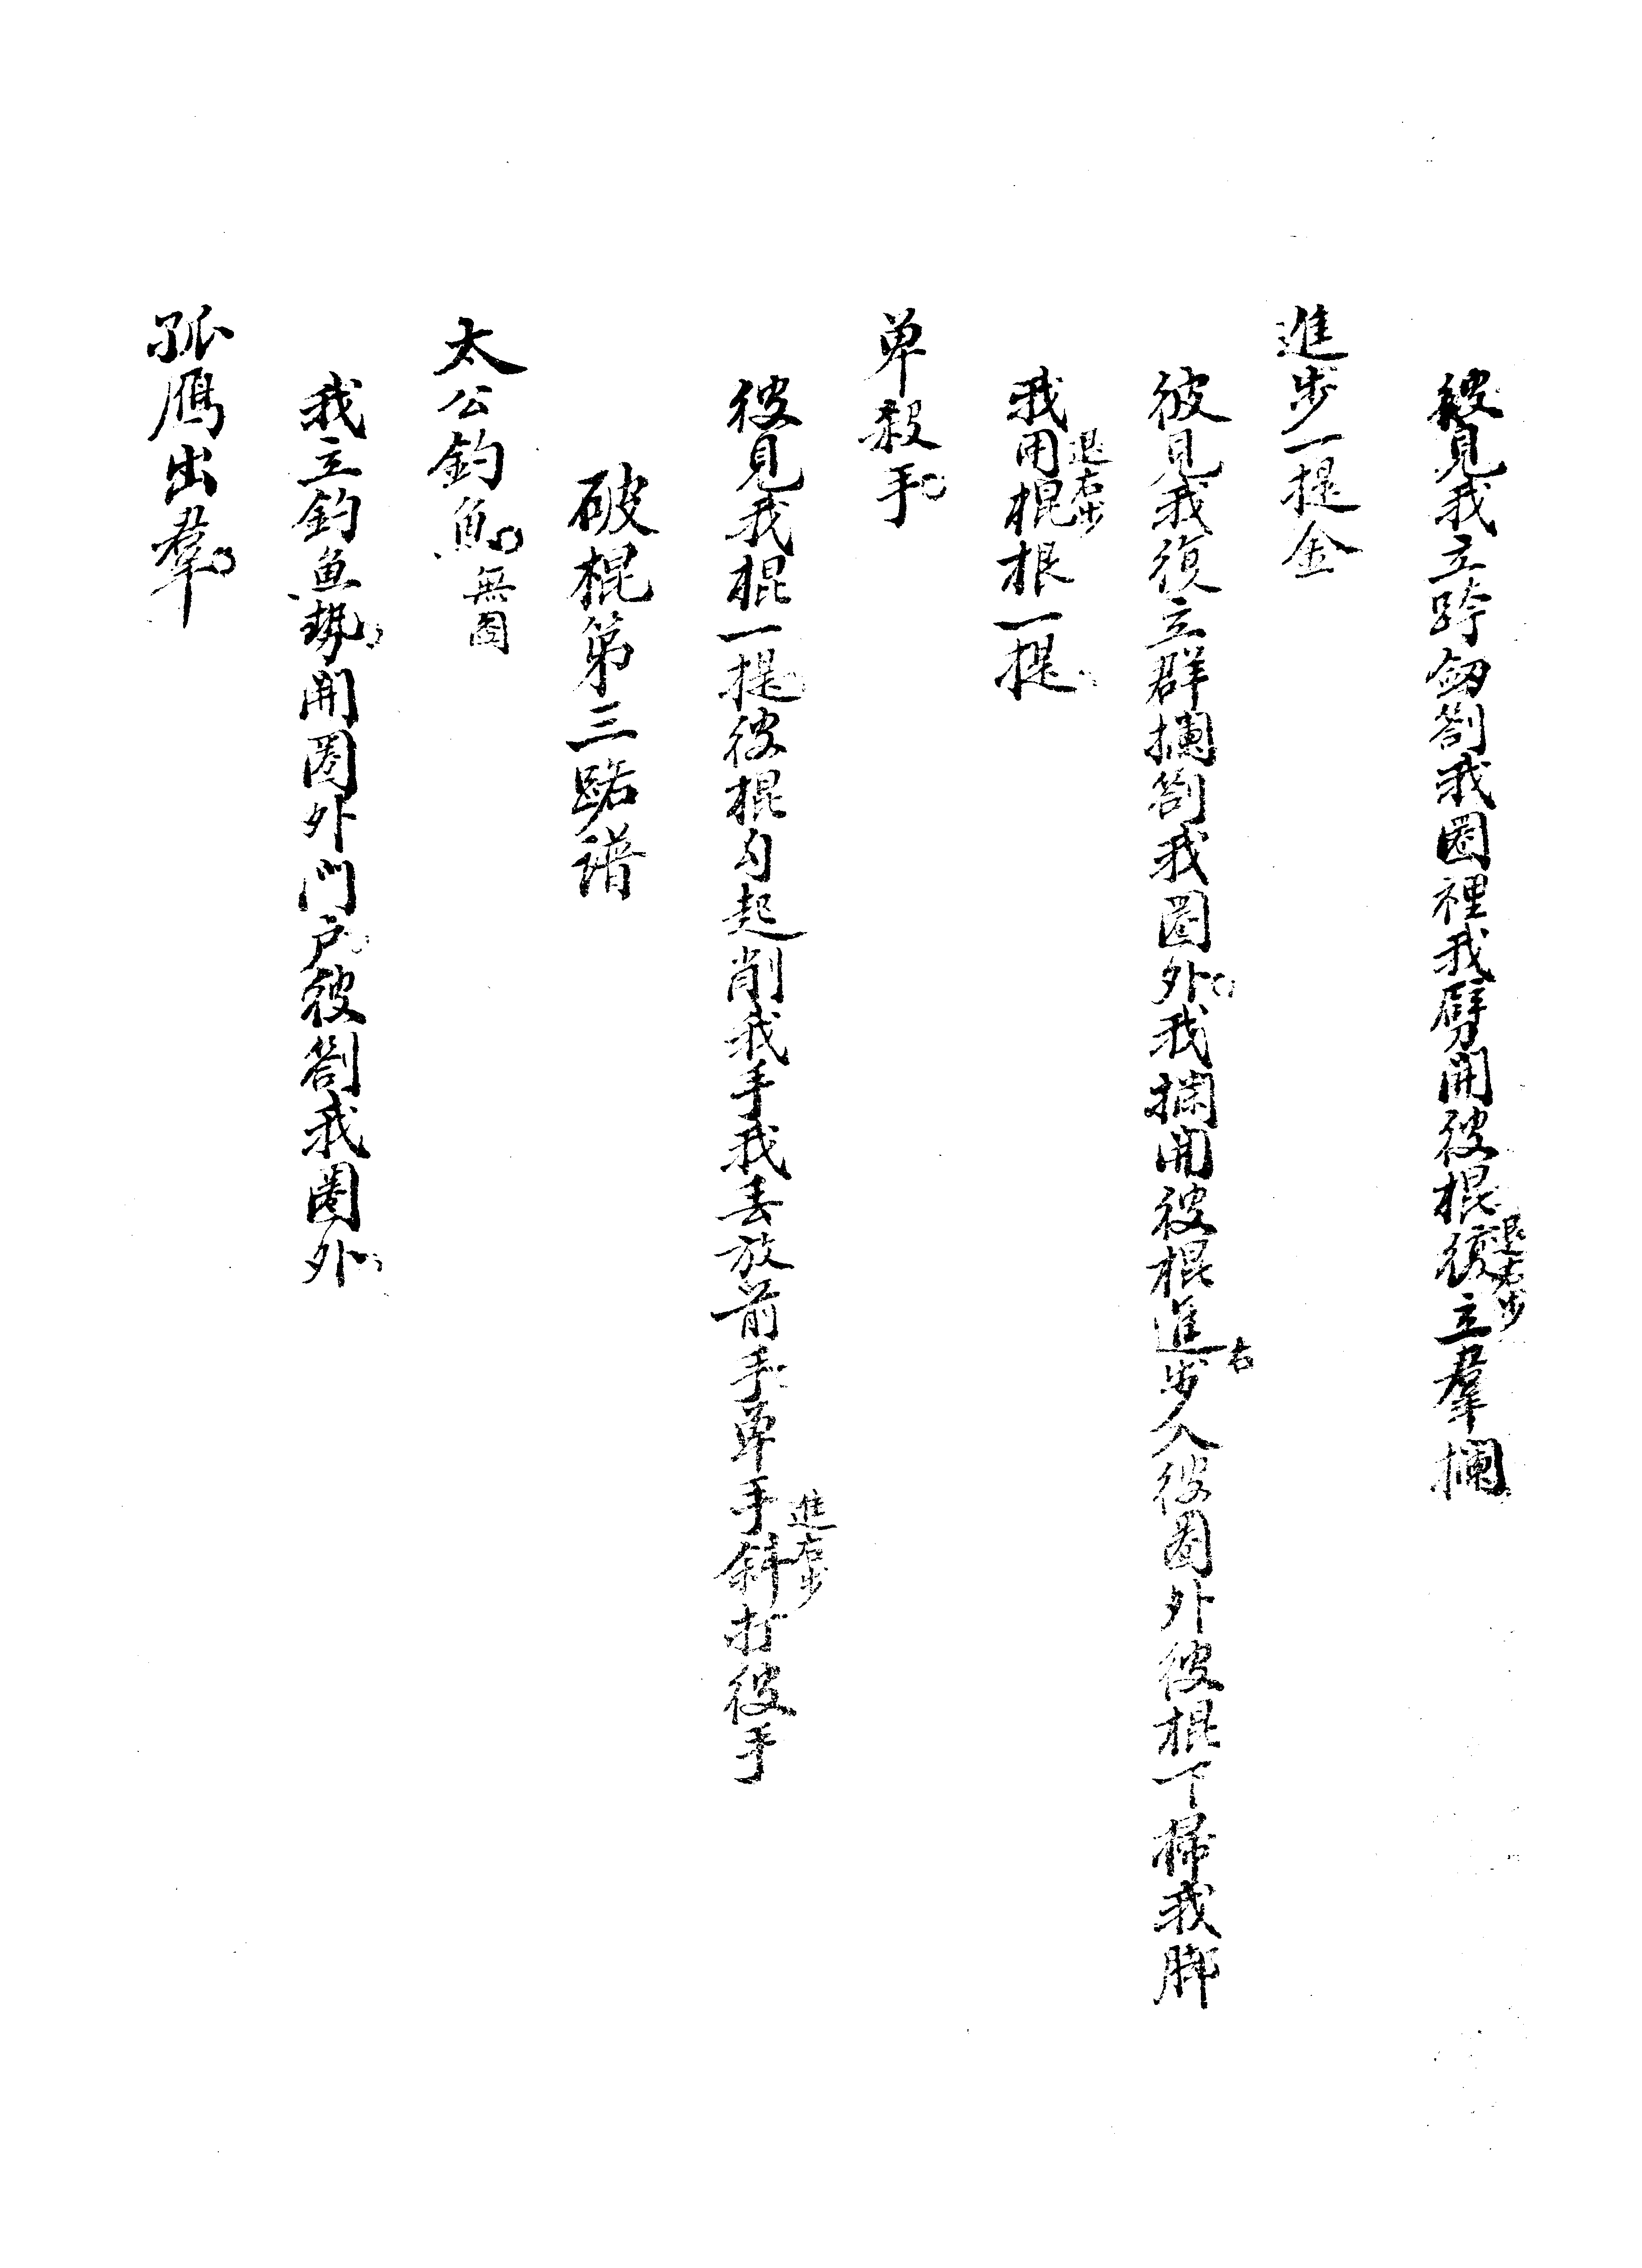 彼見我立跨劒劄我圈裡我劈開彼棍復立羣攔
退右步
進步一提金
彼見我復立群攔劄我圈外我攔開彼棍進步入彼圈外彼棍下掃我脚
右
我用棍根一提
退右步
单殺手
彼見我棍一提彼棍勾起削我手我丢放前手单手斜打彼手
進右步
破棍第三路譜
太公釣魚無圖
我立釣魚勢開圈外門戶彼劄我圈外
孤鴈出羣